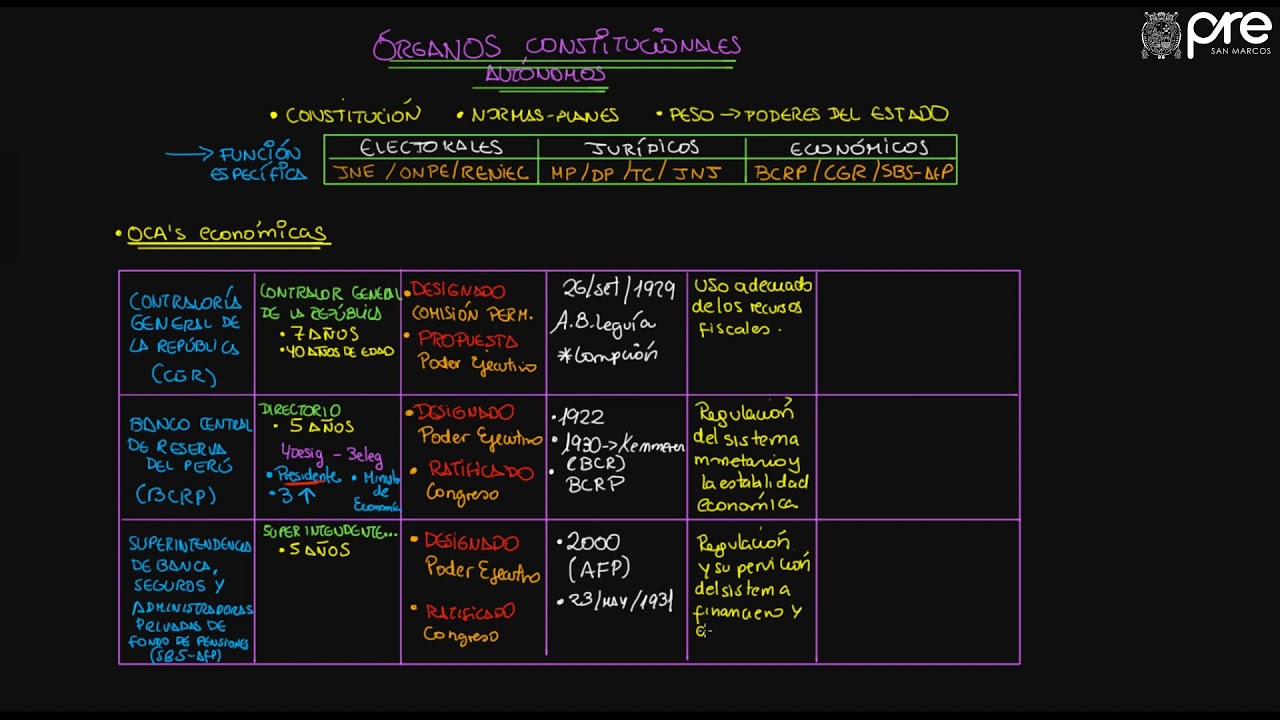 pre
SAN MARCOS
ÓRGANOS CONSTITUCIONALES
AUTÓNOMOS
• CONSTITUCIÓN • NORMAS-PLANES • PESO → PODERES DEL ESTADO
→ FUNCIÓN
ESPECÍFICA
ELECTORALES JURÍDICOS ECONÓMICOS
JNE / ONPE / RENIEC MP / DP / TC / JNJ BCRP / CGR / SBS-AFP
• OCA's económicas
CONTRALORÍA
GENERAL DE
LA REPÚBLICA
(CGR)
CONTRALOR GENERAL
DE LA REPÚBLICA
• 7 AÑOS
• 40 AÑOS DE EDAD
• DESIGNADO
COMISIÓN PERM.
• PROPUESTA
Poder Ejecutivo
26/set/1929
A.B. Leguía
* Corrupción
Uso adecuado
de los recursos
fiscales.
BANCO CENTRAL
DE RESERVA
DEL PERÚ
(BCRP)
DIRECTORIO
• 5 AÑOS
4 Desig - 3 eleg
• Presidente • Ministro
• 3 ↑ de
Economía
• DESIGNADO
Poder Ejecutivo
• RATIFICADO
Congreso
• 1922
• 1930 → Kemmerer
(BCR)
• BCRP
Regulación
del sistema
monetario y
la estabilidad
económica
SUPERINTENDENCIA
DE BANCA,
SEGUROS Y
ADMINISTRADORAS
PRIVADAS DE
FONDO DE PENSIONES
(SBS-AFP)
SUPERINTENDENTE...
• 5 AÑOS
• DESIGNADO
Poder Ejecutivo
• RATIFICADO
Congreso
• 2000
(AFP)
• 23/may/1931
Regulación
y supervición
del sistema
financiero y